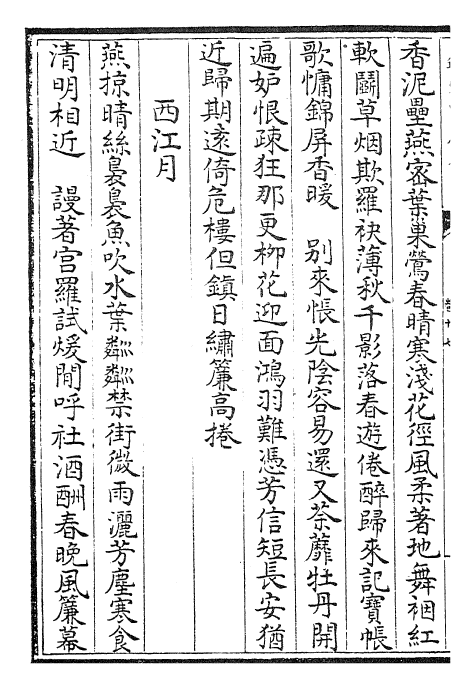 香泥壘燕密葉巢鶯春晴寒淺花徑風柔著地舞裀紅
軟鬬草烟欺羅袂薄秋千影落春遊倦醉歸來記寶帳
歌慵錦屏香暖　別來悵光陰容易還又荼蘼牡丹開
遍妒恨疎狂那更栁花迎面鴻羽難憑芳信短長安猶
近歸期遠倚危樓但鎮日繡簾高捲
西江月
燕掠晴絲裊裊魚吹水葉粼粼禁街微雨灑芳塵寒食
清明相近　謾著宫羅試煖閒呼社酒酬春晚風簾幕